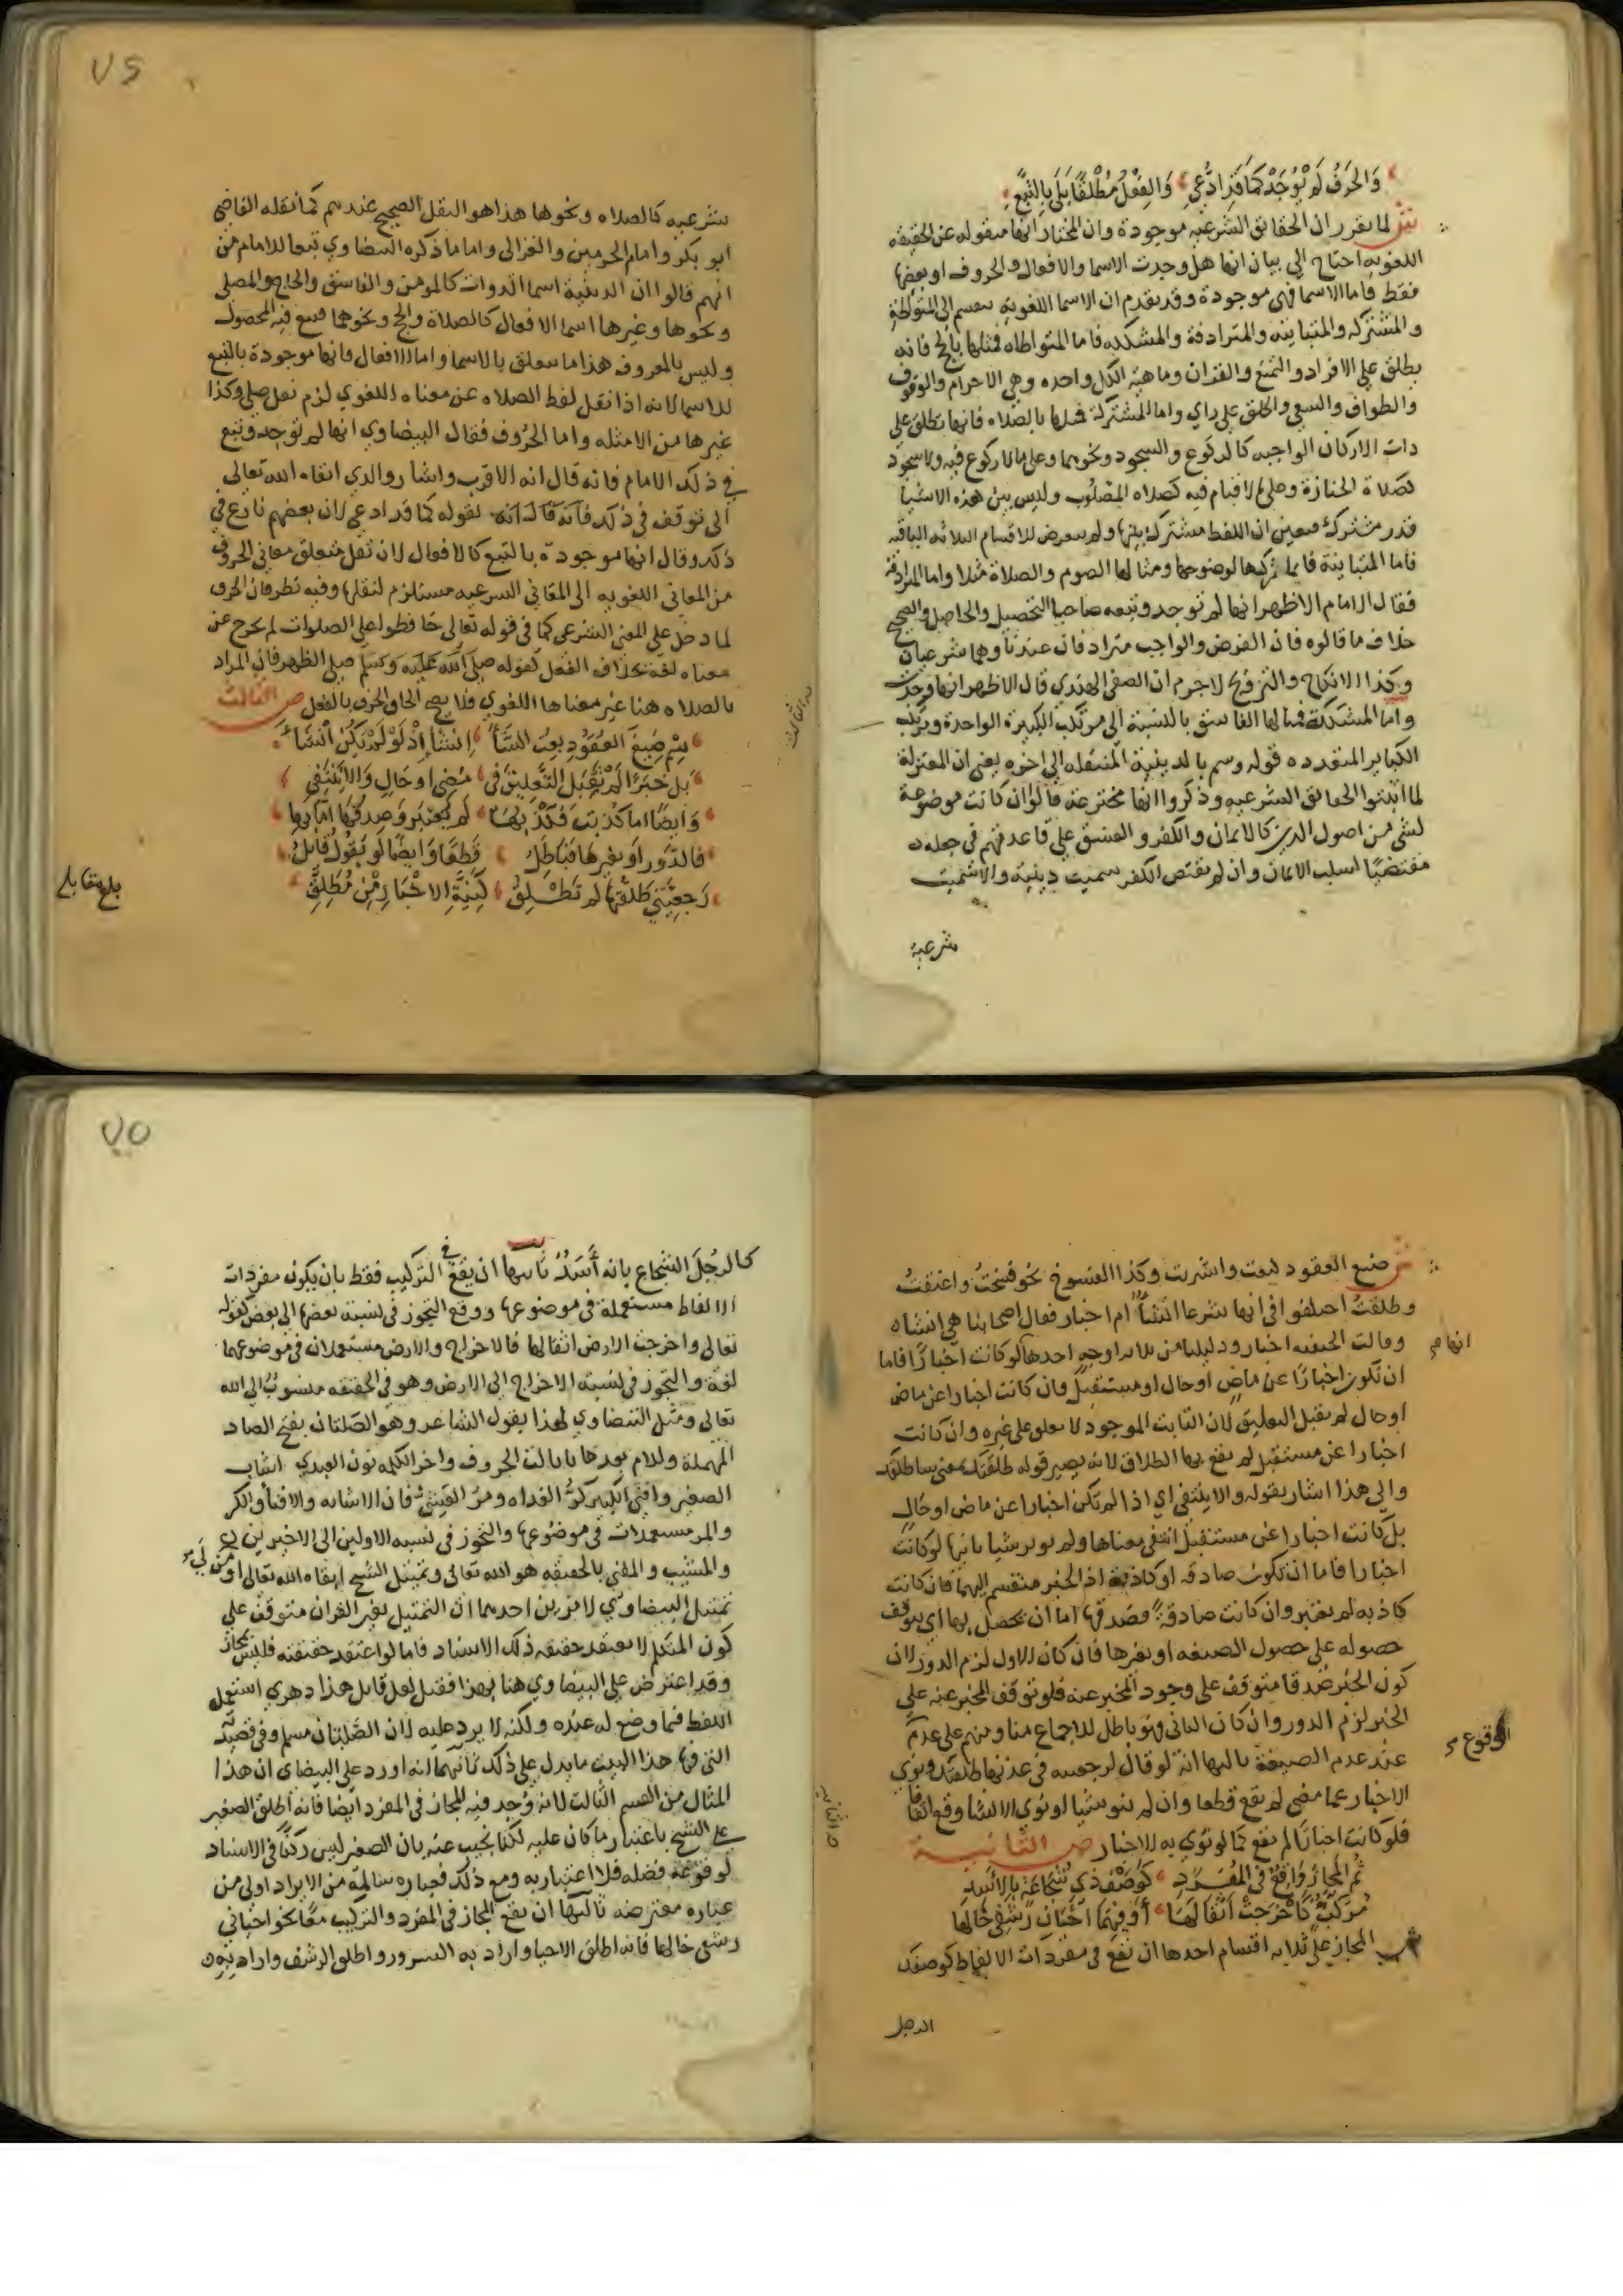 وَالحَرْفُ لَمْ يُوْجَدْ كَمَا قَدِ ادُّعِي وَالفِعْلُ مُطْلَقًا بَلَى بِالتَّبَعِ
ش لما تقرر ان الحقائق الشرعيه موجودة وان المختار انها منقوله عن الحقيقه
اللغويه احتاج الى بيان انها هل وجدت الاسما والافعال والحروف او بعضها
فقط فاما الاسما فهى موجودة وقد تقدم ان الاسما اللغوية تنقسم الى المتواطئة
والمشتركه والمتباينه والمترادفة والمشككه فاما المتواطاه فمثلها بالحج فانه
يطلق على الافراد والتمتع والقران وماهية الكل واحده وهي الاحرام والوقوف
والطواف والسعي والحلق على راي واما المشتركة فمثلها بالصلاه فانها تطلق على
ذات الاركان الواجبه كالركوع والسجود ونحوهما وعلى ما لا ركوع فيه ولا سجود
كصلاة الجنازة وعلى ما لا قيام فيه كصلاه المصلوب وليس بين هذه الاشيا
قدر مشترك فتعين ان اللفط مشترك بينها ولم يتعرض للاقسام الثلاثه الباقيه
فاما المتباينة فانما تركها لوضوحها ومثالها الصوم والصلاة مثلا واما المترادفة
فقال الامام الاظهر انها لم توجد وتبعه صاحبا التحصيل والحاصل والصحيح
خلاف ما قالوه فان الفرض والواجب مترادفان عندنا وهما شرعيان
وكذا الانكاح والتزويج لاجرم ان الصفي الهندي قال الاظهر انها وجدت
واما المشككة فمثالها الفاسق بالنسبة الى مرتكب الكبيرة الواحدة ومرتكب
الكباير المتعدده قوله وسم بالدينية المنتقله الى اخره يعني ان المعتزلة
لما اثبتوا الحقائق الشرعيه وذكروا انها مخترعة قالوا ان كانت موضوعة
لشي من اصول الدين كالايمان والكفر والفسق على قاعدتهم في جعله
مقتضيًا لسلب الايمان وان لم يقتض الكفر سميت دينيه والا سميت
شرعية
٧٤
شرعيه كالصلاه ونحوها هذا هو النقل الصحيح عندهم كما نقله القاضي
ابو بكر وامام الحرمين والغزالى واما ما ذكره البيضاوي تبعا للامام من
انهم قالوا ان الدينية اسما الذوات كالمومن والفاسق والحاج والمصلى
ونحوها وغيرها اسما الافعال كالصلاة والحج ونحوهما فتبع فيه المحصول
وليس بالمعروف هذا ما يتعلق بالاسما واما الافعال فانها موجودة بالتبع
للاسما لانه اذا نقل لفظ الصلاه عن معناه اللغوي لزم نقل صلى وكذا
غيرها من الامثله واما الحُرُوف فقال البيضاوي انها لم توجد وتبع
في ذلك الامام فانه قال انه الاقرب واشار والدي ابقاه الله تعالى
الى توقف في ذلك بقوله كما قد ادعي لان بعضهم نازع في
ذلك وقال انها موجودة بالتبع كالافعال لان نقل متعلق معاني الحروف
من المعاني اللغويه الى المعاني الشرعيه مستلزم لنقلها وفيه نظر فان الحرف
لما دخل على المعنى الشرعي كما في قوله تعالى حافظوا على الصلوات لم يخرج عن
معناه لغة بخلاف الفعل كقوله صلى الله عليه وسلم صلى الظهر فان المراد
بالصلاه هنا غير معناها اللغوي فلا يصح الحاق الحرف بالفعل ص الثالث
سِمْ صِيَغَ العُقُودِ بِعتُ الشَّا اِنشَا إِذْ لَوْ لَمْ يَكُنْ اَنشَاءُ
بَلْ خَبَرًا لَمْ تَقْبَلِ التَّعْلِيقَ فِي مُضِي اَوحَالٍ وَالاَّ يَنْتَفِي
وَايضًا اما كذبت لَم يُعْتَبر وَصِدقُهَا اِمَّا بِهَا
فالدَّور اَو بغيرهَا فَبَاطِلُ قَطعًا وَايضًا لَو يَقُولُ قَائِلُ
رَجعِيَّتي طَلَّقتُهَا لَم تَطْلُقِ كَنِيَّةِ الاخْبَارِ مِنْ مُطَلِّقِ
بلغ مقابله
ش صيغ العقود كبعت واشتريت وكذا الفسوخ نحو فسختُ واعتقتُ
وطلقتُ اختلفوا في انها شرعا انشأ ام اخبار فقال اصحابنا هي انشاه
وقالت الحنفيه اخبار ودليلنا من ثلاثه اوجه احدها لو كانت اخبارًا فاما
انها
ان تكون اخبارًا عن ماضٍ او حال او مستقبل فان كانت اخبارا عن ماض
او حال لم يقبل التعليق لان الثابت الموجود لا يعلق على غيره وان كانت
اخبارا عن مستقبل لم يقع بها الطلاق لانه يصير قوله طلقتك بمعنى ساطلقك
والى هذا اشار بقوله والا ينتفي اي اذا لم تكن اخبارا عن ماض او حالٍ
بل كانت اخبارا عن مستقبل انتفى معناها ولم يوثر شيا ثانيها لو كانت
اخبارا فاما ان تكون صادقه او كاذبة اذ الخبر منقسم اليهما فان كانت
كاذبه لم يعتبر وان كانت صادقةً فصدقها اما ان تحصل بها اي يتوقف
حصوله على حصول الصيغه او بغيرها فان كان الاول لزم الدور لان
كون الخبر صدقا متوقف على وجود المخبر عنه فلو توقف المخبر عنه على
الخبر لزم الدور وان كان الثاني فهو باطل للاجماع منا ومنهم على عدم
الوقوع
عند عدم الصيغة ثالثها انه لو قال لرجعيه في عدتها طلقتك ونوى
الاخبار عما مضى لم يقع قطعا وان لم ينو شيا او نوى الانشا وقع اتفاقًا
فلو كانت اخبارًا لم يقع كما لو نوى به الاخبار ص الثانية
ثُم المجَاز وَاقعٌ في المُفْرَدِ كَوَصْفِ ذِي شَجَاعَةٍ بِالاَسَدِ
مُرَكَّبٌ كَاَخْرَجَتْ اَثْقَالَهَا اَوْ فِيهِمَا اَحْيَانِ رَشفِى خَالَهَا
ش المجاز على ثلاثه اقسام احدها ان يقع فى مفردات الالفاظ كوصفك
الرجل
٧٥
كالرجُل الشجاع بانه أَسَدٌ ثانيها ان يقع في التركيب فقط بان يكون مفردات
الالفاظ مستعملة في موضوعها ووقع التجوز في نسبة بعضها الى بعض كقوله
تعالى واخرجت الارض اثقالها فالاخراج والارض مستعملان في موضوعهما
لغة والتجوز في نسبة الاخراج الى الارض وهو في الحقيقه منسوبٌ الى الله
تعالى ومثل البيضاوي لهذا بقول الشاعر وهو الصَلتان بفتح الصاد
المهملة وللام بعدها تا ثالث الحروف واخر الكلمه نون العبدي اشاب
الصغير وافنى الكبير كرُّ الغداه ومرّ العشِيّ فان الاشابه والافنا والكر
والمر مستعملات في موضوعها والتجوز في نسبه الاولين الى الاخيرين
والمشيب والمفني بالحقيقه هو الله تعالى وتمثيل الشيخ ابقاه الله تعالى اولى من
تمثيل البيضاوي لامرين احدهما ان التمثيل بغير القران متوقف على
كون المتكلم لا يعتقد حقيقه ذلك الاسناد فاما لو اعتقد حقيقته فليس بمجاز
وقد اعترض على البيضاوي هنا بهذا فقيل لعل قايل هذا دهري استعمل
اللفظ فيما وضع له عنده ولكنه لا يرد عليه لان الصَلتان مسلم وفي قصيدته
التي فيها هذا البيت ما يدل على ذلك ثانيهما انه اورد على البيضاوى ان هذا
المثال من القسم الثالث لانه وُجد فيه المجاز في المفرد ايضا فانه اطلق الصغير
على الشيخ باعتبار ما كان عليه لكنا نجيب عنه بان الصغير ليس ركنًا في الاسناد
لوقوعه فضله فلا اعتبار به ومع ذلك فعباره سالمة من الايراد اولى من
عباره معترضه ثالثها ان يقع المجاز في المفرد والتركيب معًا كقوله احياني
رشفى خالها فانه اطلق الاحيا واراد به السرور واطلق الرشف واراد به